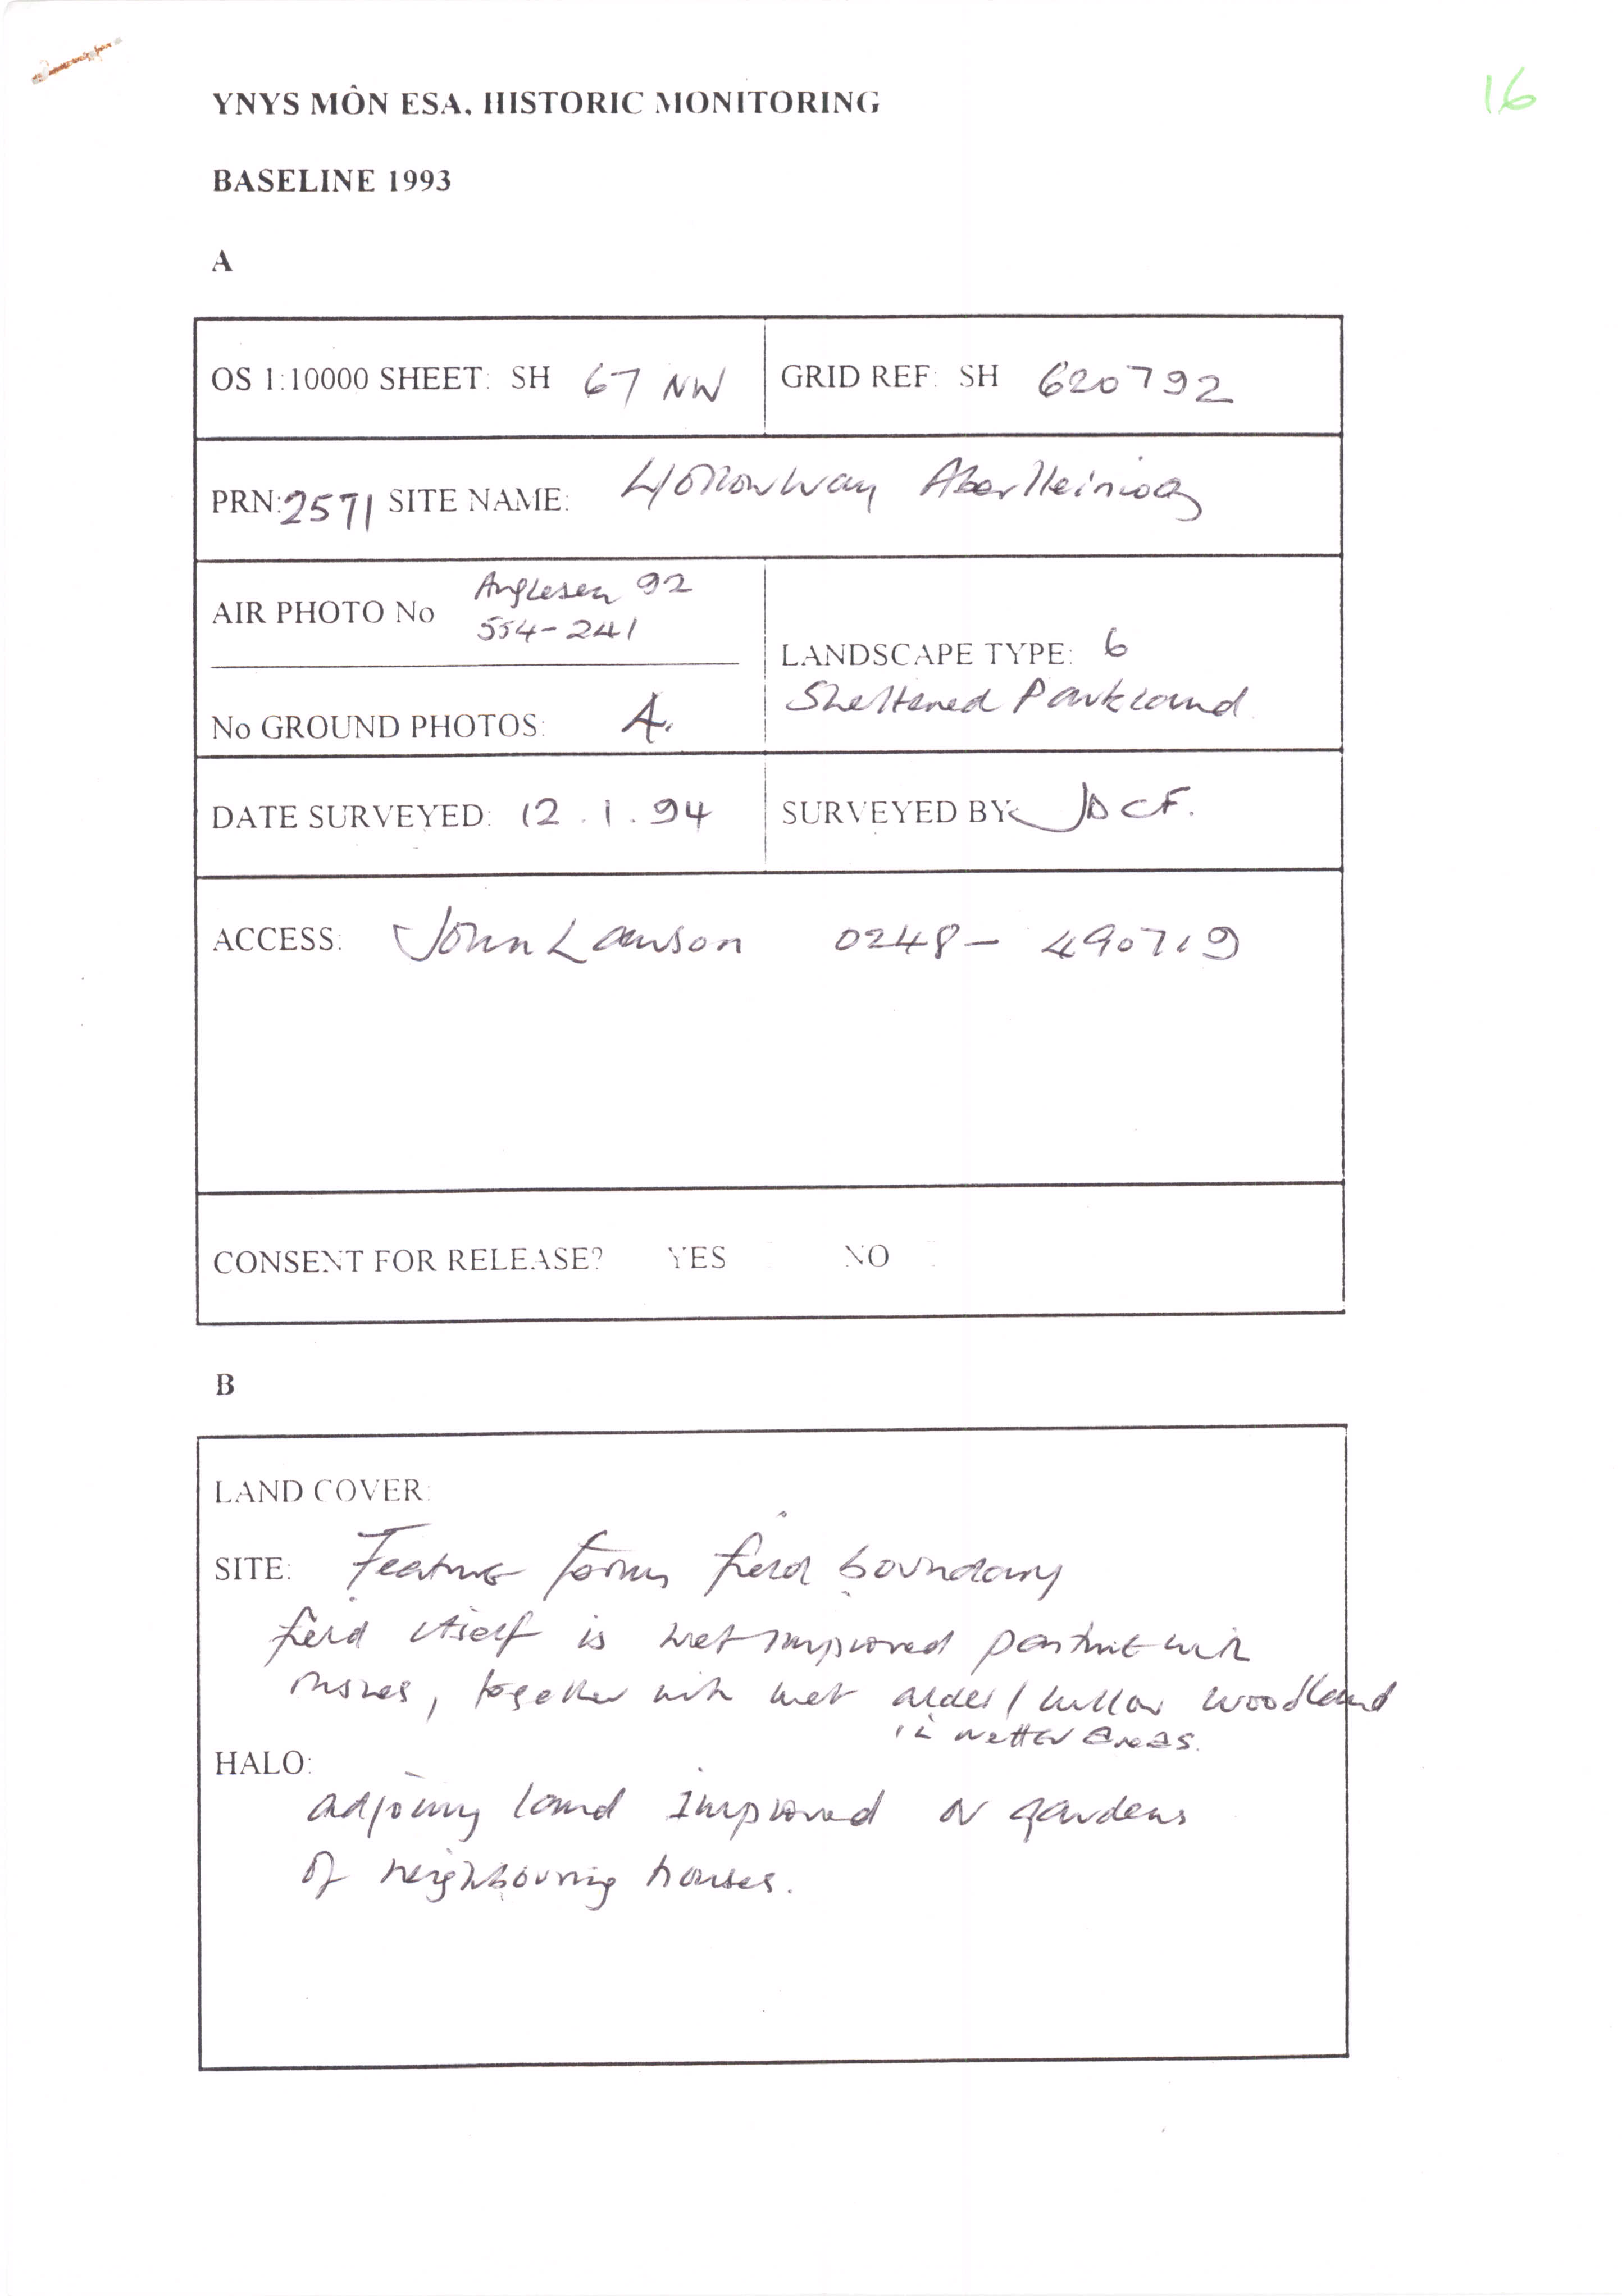 16
YNYS MÔN ESA, HISTORIC MONITORING
BASELINE 1993
A
OS 1:10000 SHEET: SH 67 NW
GRID REF: SH 620792
PRN: 2571 SITE NAME: Hollow Way Aberlleiniog
AIR PHOTO No Anglesey 92
554-241
LANDSCAPE TYPE: 6
Sheltered Parkland
No GROUND PHOTOS: 4.
DATE SURVEYED: 12.1.94
SURVEYED BY: JDCF.
ACCESS: John Lawson 0248- 490719
CONSENT FOR RELEASE? YES NO
B
LAND COVER:
SITE: Feature forms field boundary
field itself is wet improved pasture with
rushes, together with wet alder/willow woodland
in wetter areas.
HALO:
adjoining land improved or gardens
of neighbouring houses.